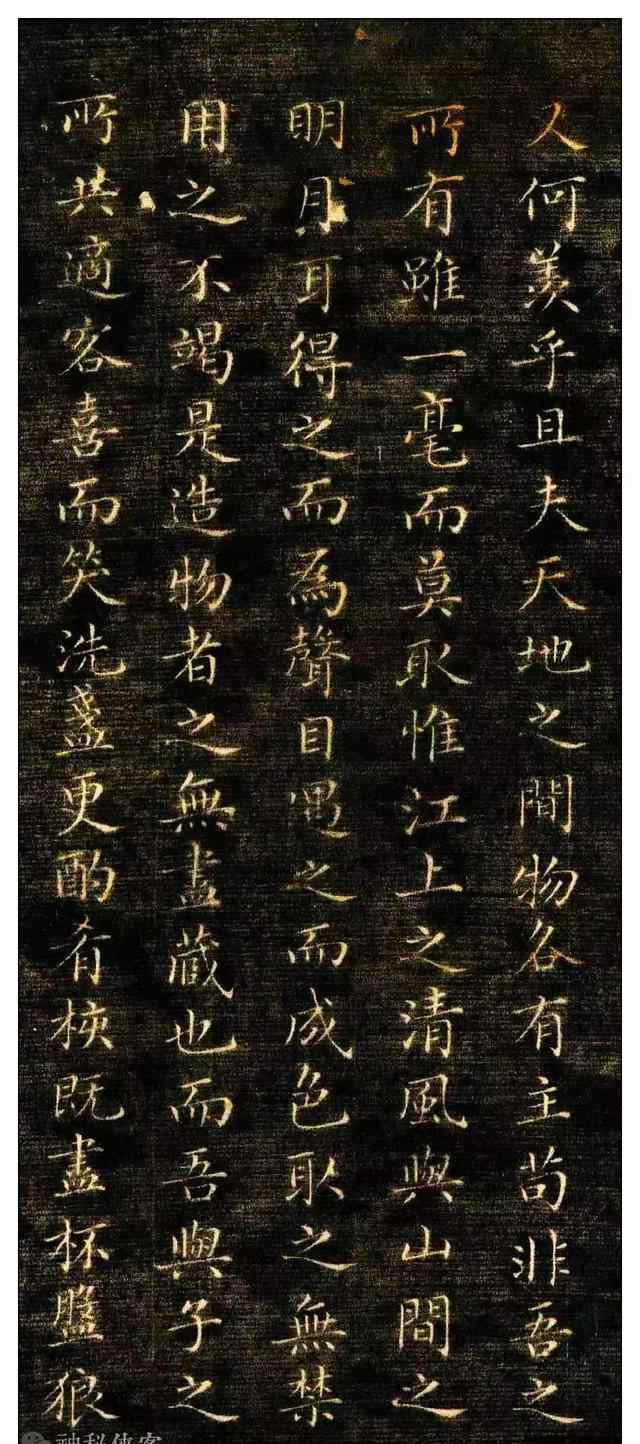 人何羨乎且夫天地之間物各有主苟非吾之
所有雖一毫而莫取惟江上之清風與山間之
明月耳得之而為聲目遇之而成色取之無禁
用之不竭是造物者之無盡藏也而吾與子之
所共適客喜而笑洗盞更酌肴核既盡杯盤狼
神秘侠客